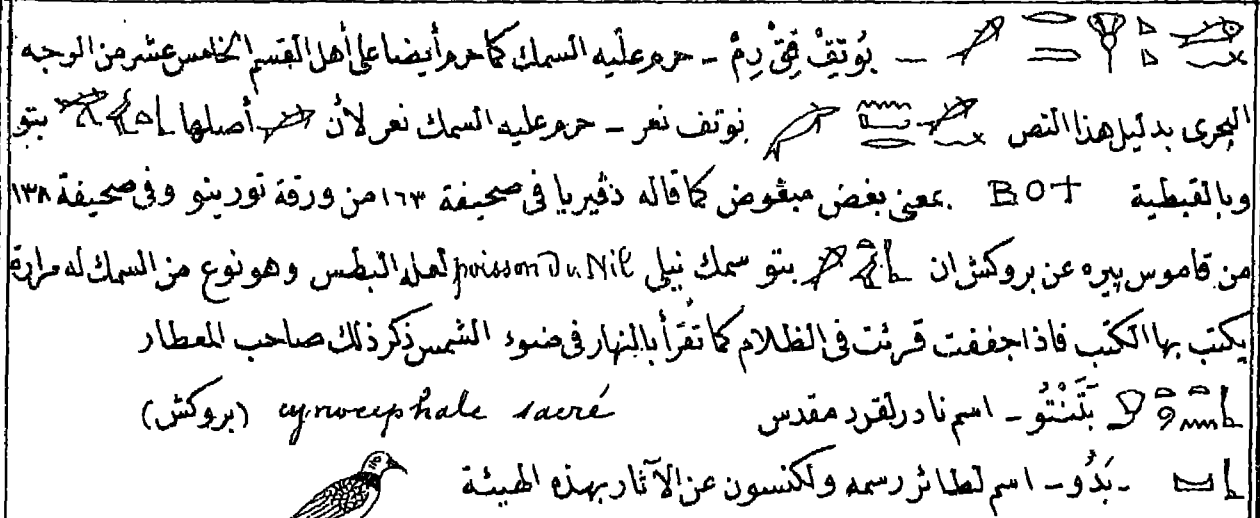 بُوتِفْ فِى رِمْ ـ حرم عليه السمك كما حرم أيضا على أهل القسم الخامس عشر من الوجه
البحرى بدليل هذا النص بوتف نعر ـ حرم عليه السمك نعر لأن أصلها بتو
وبالقبطية BOT بمعنى بغض مبغوض كما قاله دڤيريا فى صحيفة ١٦٣ من ورقة تورينو وفى صحيفة ١٣٨
من قاموس پيره عن بروكش ان بتو سمك نيلى poisson du Nil لعله البطس وهو نوع من السمك له مرارة
يكتب بها الكتب فاذا جففت قرئت فى الظلام كما تقرأ بالنهار فى ضوء الشمس ذكر ذلك صاحب المعطار
بَتَنْتُو ـ اسم نادر لقرد مقدس cynocephale sacré (بروكش)
ـ بَدُو ـ اسم لطائر رسمه ولكنسون عن الآثار بهذه الهيئة